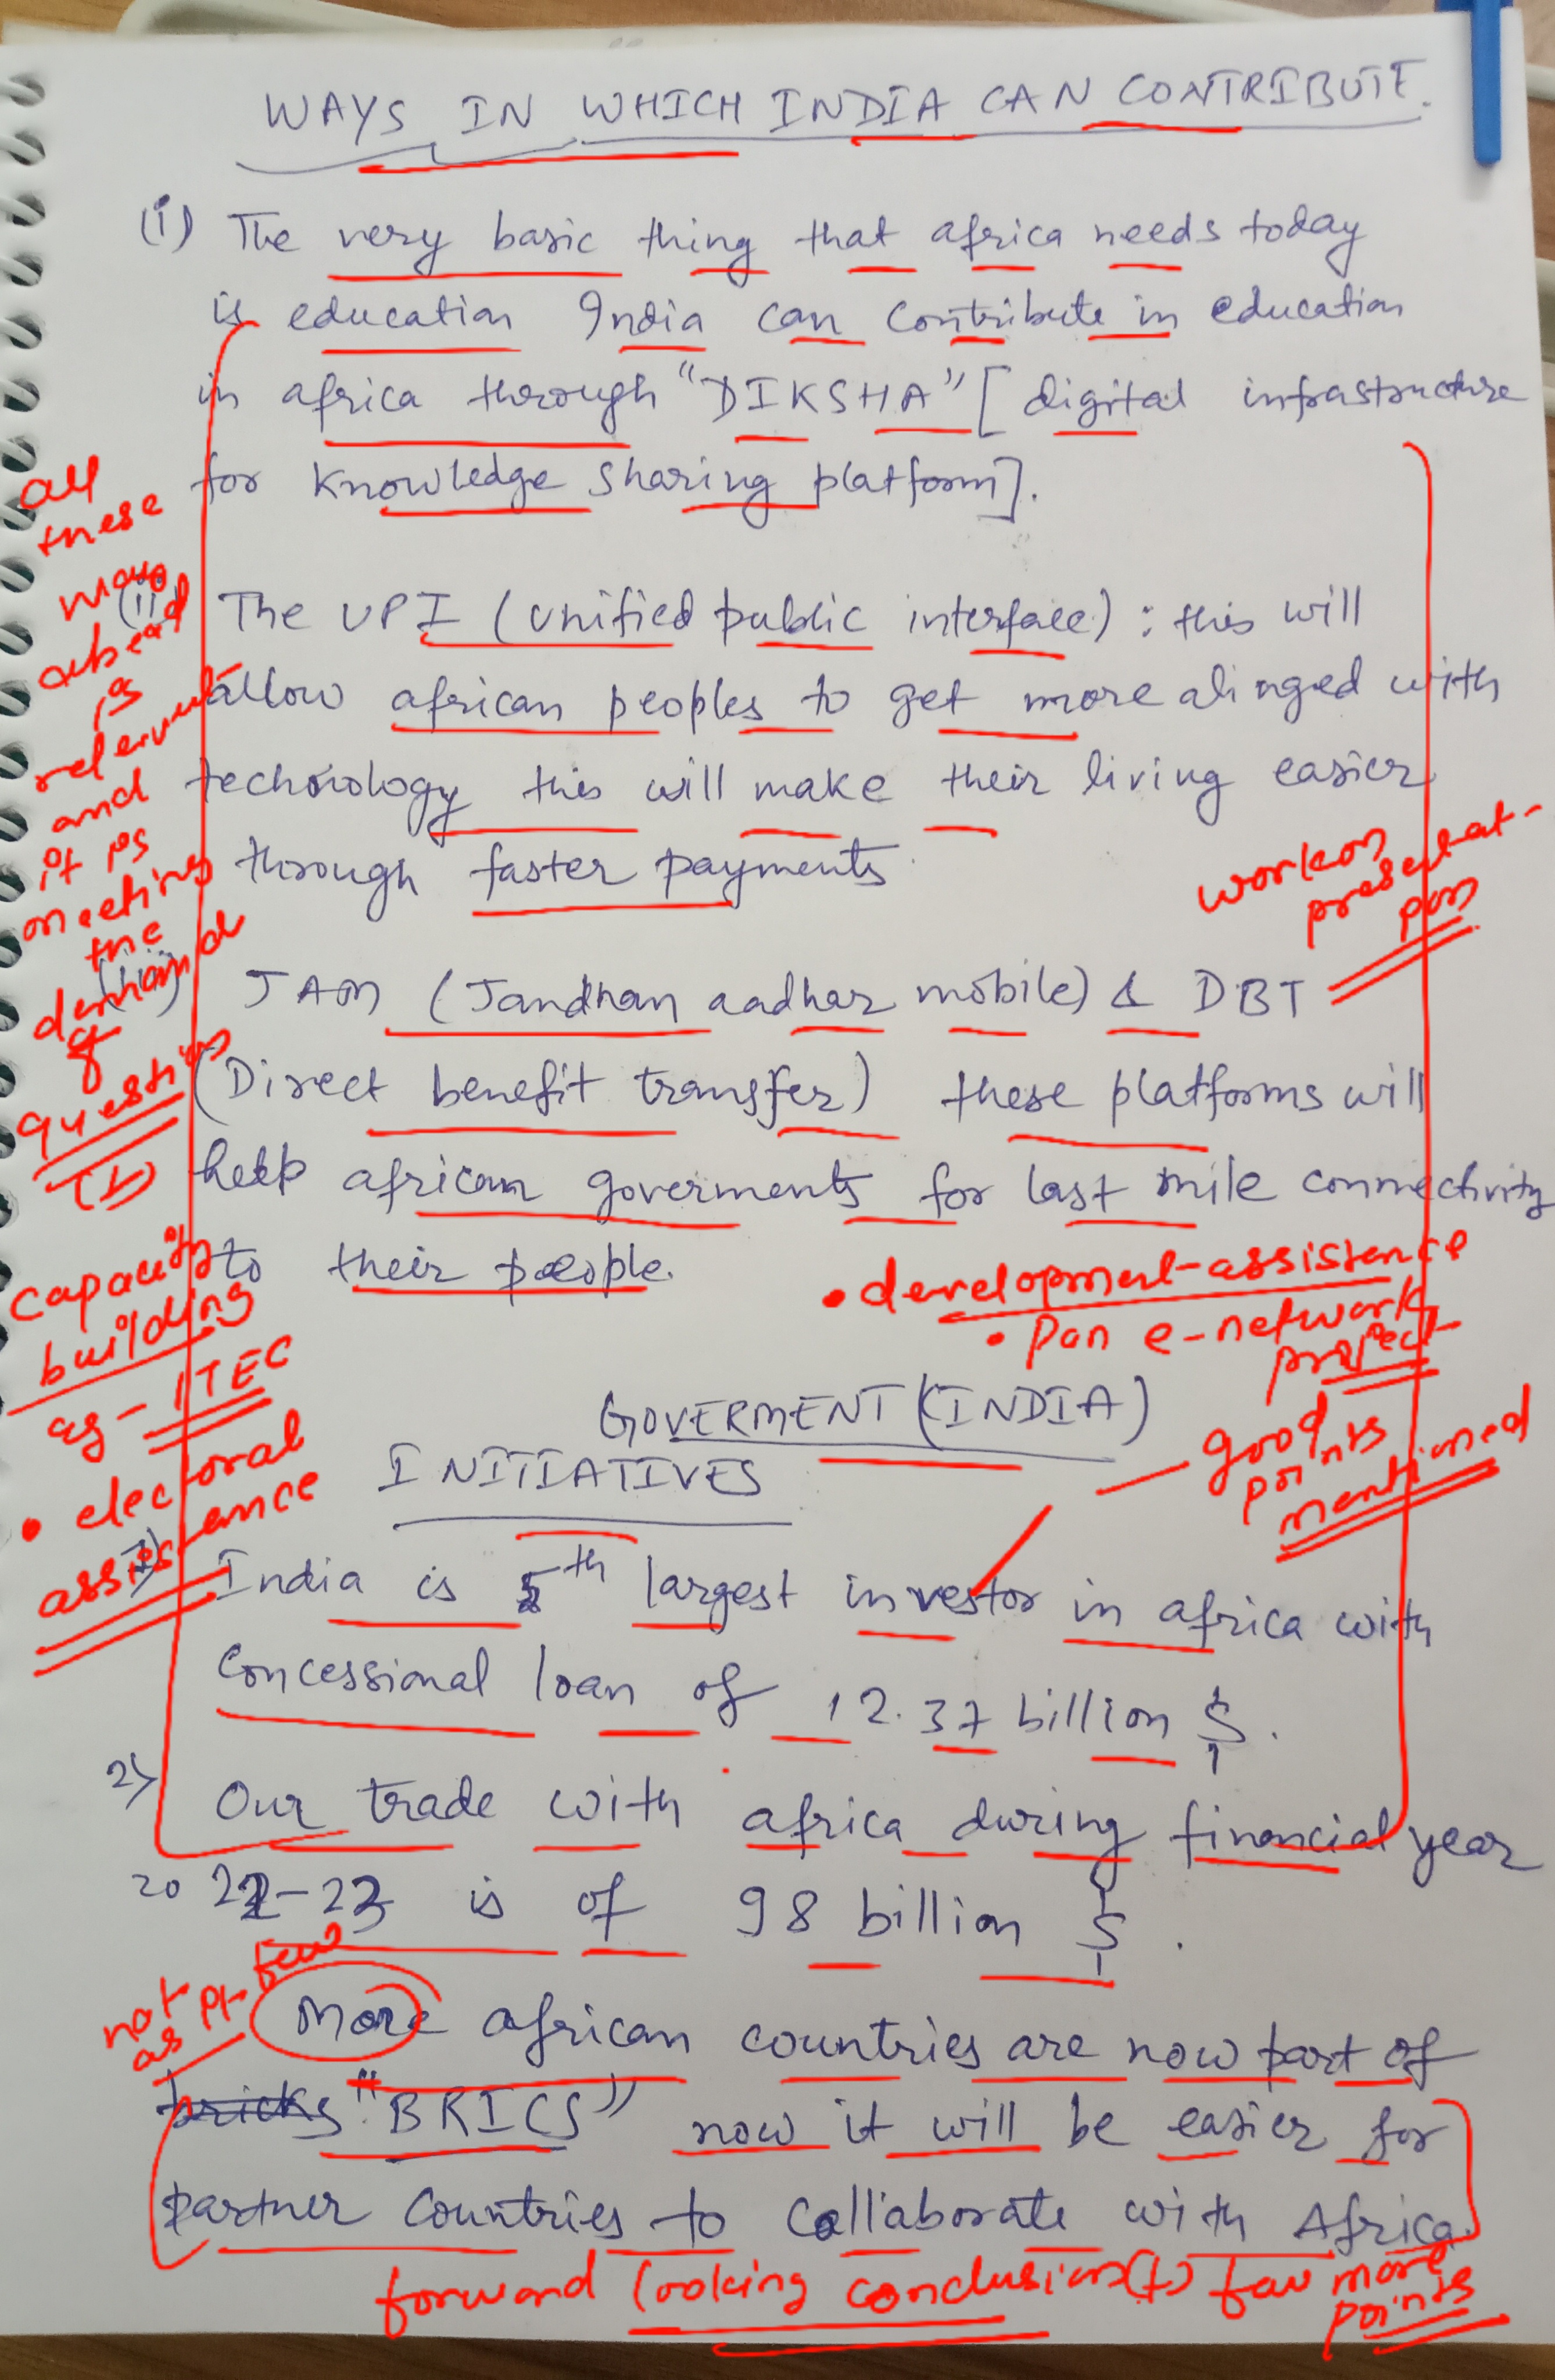 WAYS IN WHICH INDIA CAN CONTRIBUTE.
(i) The very basic thing that africa needs today
is education India can contribute in education
in africa through "DIKSHA" [ digital infrastructure
for knowledge sharing platform].
(ii) The UPI (unified public interface) : this will
allow african peoples to get more alinged with
technology this will make their living easier
through faster payments
(iii) JAM (Jandhan aadhar mobile) & DBT
(Direct benefit transfer) these platforms will
help african goverments for last mile connectivity
to their people.
GOVERMENT (INDIA)
INITIATIVES
1) India is 5th largest investor in africa with
concessional loan of 12.37 billion $.
2) Our trade with africa during financial year
2022-23 is of 98 billion $.
More african countries are now part of
bricks "BRICS" now it will be easier for
partner countries to collaborate with Africa.
all
these
ways
ahead
is
relevant
and
it is
meeting
the
demand
of
question
(t)
capacity
building
eg - ITEC
• electoral
assistance
work on
presentat-
ion
• development-assistence
• Pan e-network
project
good
points
mentioned
not few
as pr
forward looking conclusion(t) few more
points